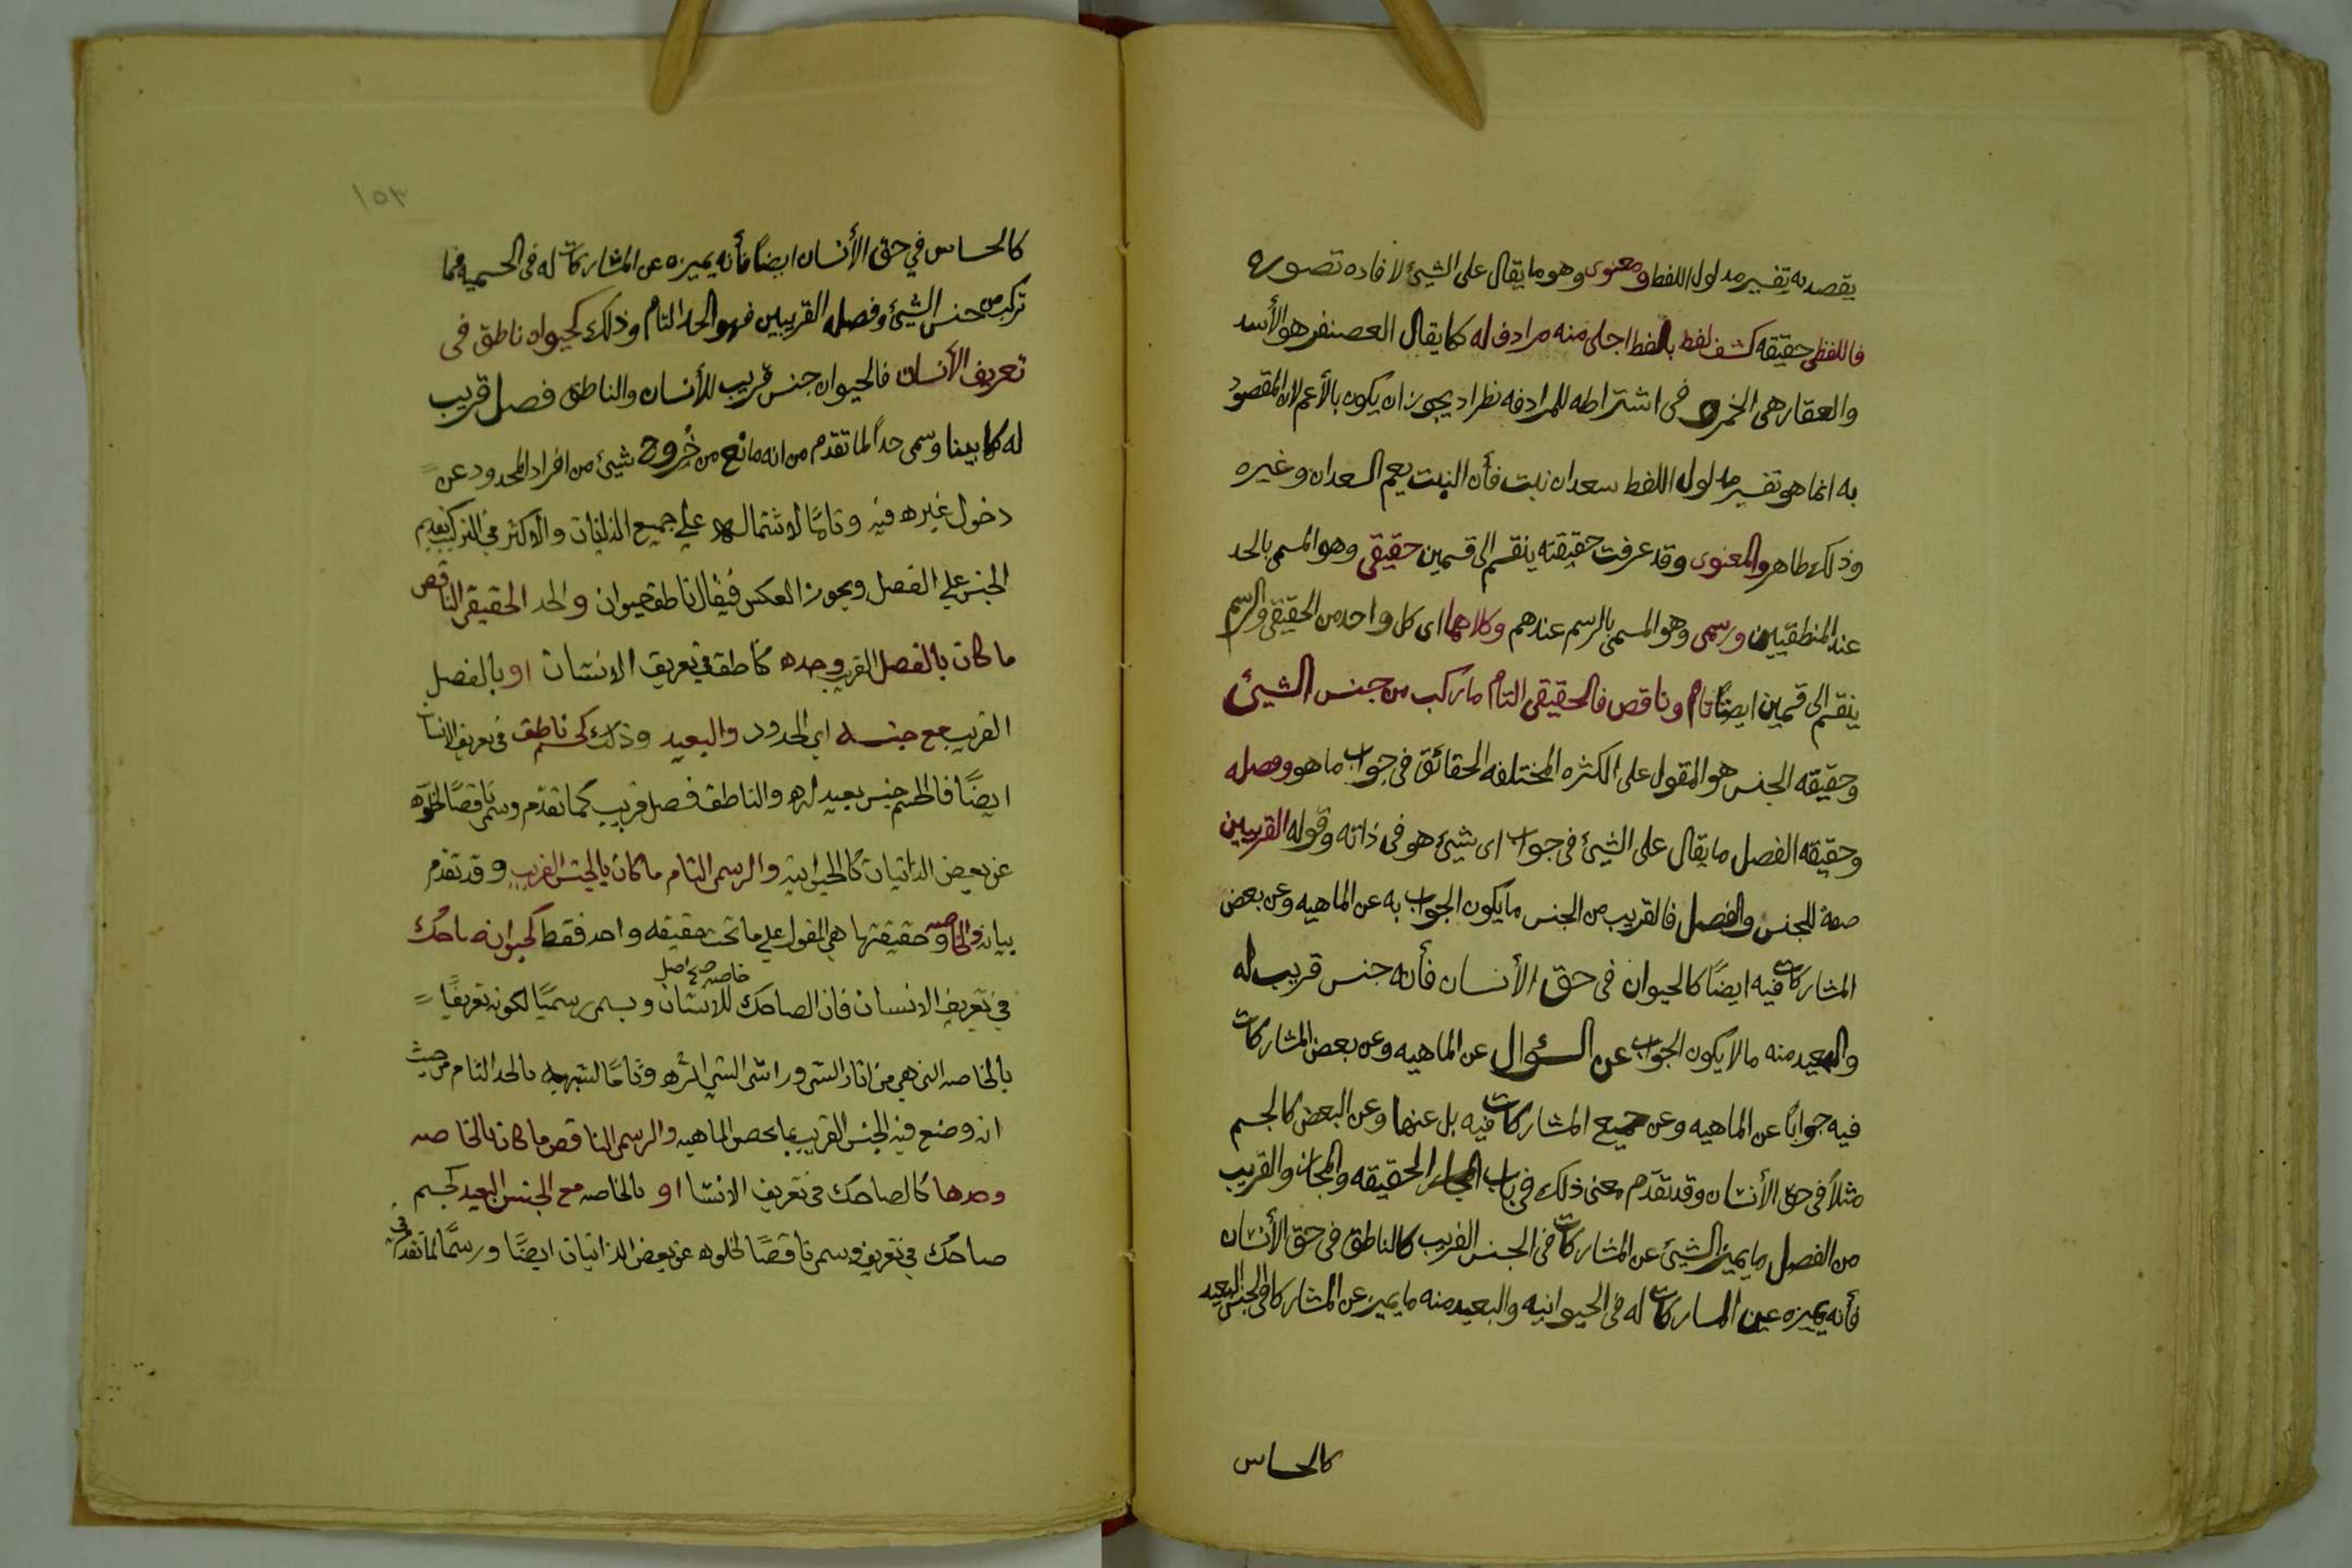 يقصد به تفسير مدلول اللفظ ومعنوى وهو ما يقال على الشيئ لافاده تصوره
فاللفظى حقيقه كشف لفظ بلفظ اجلى منه مرادف له كما يقال العضنفر هو الأسد
والعقار هى الخمر و فى اشتراطه للمرادفه نظر اذ يجوز ان يكون بالأعم لان المقصود
به انما هو تفسير مدلول اللفظ سعدان نبت فأن النبت يعم السعدان وغيره
وذلك ظاهر والمعنوى وقد عرفت حقيقته ينقسم الى قسمين حقيقى وهو المسمى بالحد
عند المنطقيين ورسمى وهو المسمى بالرسم عندهم وكلاهما اى كل واحد من الحقيقى والرسم
ينقسم الى قسمين ايضًا تام وناقص فالحقيقى التام ما ركب من جنس الشيئ
وحقيقه الجنس هو المقول على الكثره المختلفه الحقائق فى جواب ما هو وفصله
وحقيقه الفصل ما يقال على الشيئ فى جواب اى شيئ هو فى ذاته وقوله القريبين
صفة للجنس والفصل فالقريب من الجنس ما يكون الجواب به عن الماهيه وعن بعض
المشاركات فيه ايضًا كالحيوان فى حق الأنسان فأنه جنس قريب له
والبعيد منه ما لا يكون الجواب عن السؤال عن الماهيه وعن بعض المشاركات
فيه جوابًا عن الماهيه وعن جميع المشاركات فيه بل عنها وعن البعض كالجسم
مثلاً فى حق الأنسان وقد تقدم معنى ذلك فى باب الحقيقه والمجاز والقريب
من الفصل ما يميز الشيئ عن المشاركات فى الجنس القريب كالناطق فى حق الأنسان
فأنه يميزه عن المساركات له فى الحيوانيه والبعيد منه ما يميز عن المشاركات فى الجنس البعيد
كالحساس
١٥٣
كالحساس في حق الأنسان ايضًا فأنه يميزه عن المشاركات له فى الجسميه فما
تركب من جنس الشيئ وفصله القريبين فهو الحد التام وذلك كحيوان ناطق فى
تعريف الأنسان فالحيوان جنس قريب للأنسان والناطق فصل قريب
له كما بينا وسمى حداً لما تقدم من انه مانع من خروج شيئ من افراد المحدود عن
دخول غيره فيه وتامًا لاشتماله على جميع الذاتيات والأكثر في التركيب تقديم
الجنس علي الفصل ويجوز العكس فيقال ناطق حيوان والحد الحقيقى الناقص
ما كان بالفصل القريب وحده كناطق في تعريف الانسان او بالفصل
القريب مع جنسه اي المحدود والبعيد وذلك كجسم ناطق في تعريف الانسان
ايضًا فالجسم جنس بعيد له والناطق فصل قريب كما تقدم وسمى ناقصًا لخلوه
عن بعض الذاتيات كالحيوانية والرسمى التام ما كان بالجنس القريب وقد تقدم
بيانه والخاصه وحقيقتها هي المقول علي ما تحت حقيقه واحد فقط كحيوان ضاحك
في تعريف الانسان فان الضاحك خاصه للانسان ويسمى رسميًا لكونه تعريفًا
بالخاصه التى هي من اثار الشى وراسى الشي اثره وتامًا لشبهه بالحد التام من حيث
انه وضع فيه الجنس القريب بما يخص الماهيه والرسمى الناقص ما كان بالخاصه
وحدها كالضاحك في تعريف الانسا او بالخاصه مع الجنس البعيد كجسم
ضاحك في تعريف وسمى ناقصًا لخلوه عن بعض الذاتيات ايضًا ورسمًا لما تقدم